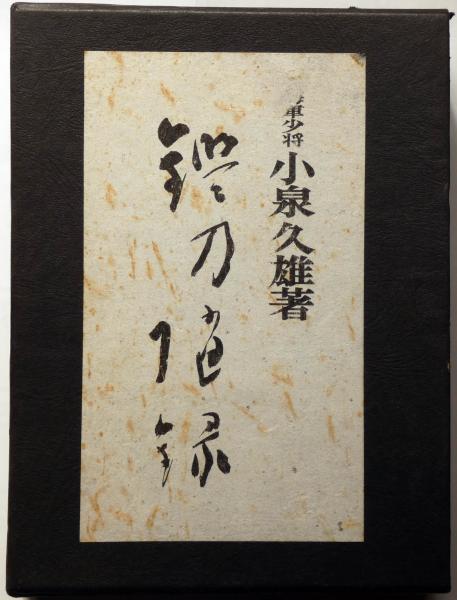 海軍少将 小泉久雄著
鑑刀随録